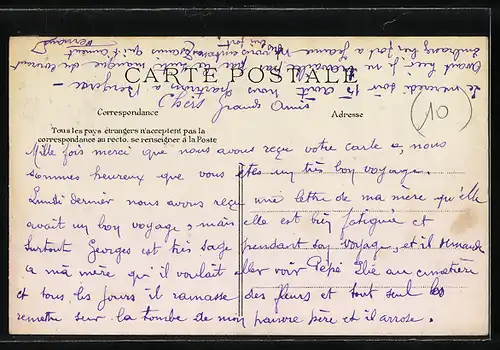 CARTE POSTALE
Correspondance
Adresse
Tous les pays étrangers n'acceptent pas la
correspondance au recto, se renseigner à la Poste
10
Chers Grands Amis
Mille fois merci que nous avons reçu votre carte, nous
sommes heureux que vous êtes un très bon voyage.
Lundi dernier nous avons reçu une lettre de ma mère qu'elle
avait un bon voyage, mais elle est bien fatiguée et
surtout Georges est très sage pendant son voyage, et il demande
a ma mère qu'il voulait aller voir Pépé au cimetière
et tous les jours il ramasse des fleurs et tout seul les
remettre sur la tombe de mon pauvre père et il arrose.
Le mercredi soir 15 Août nous